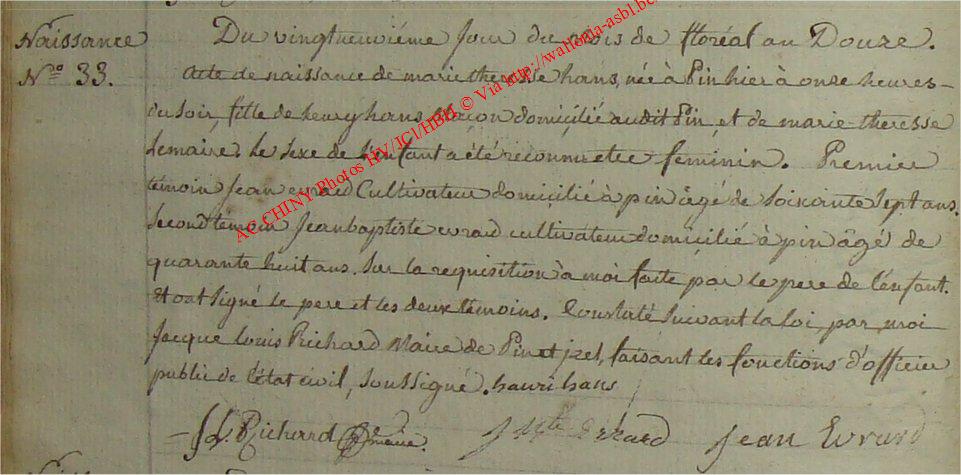 Naissance
N.º 33.
Du vingtneuviéme jour du mois de floréal an Douze.
acte de naissance de marie theresse hans, née à Pin hier à onze heures
du soir, fille de henry hans Maçon domicilié audit Pin, et de marie theresse
Lemaire, Le sexe de l'enfant a été reconnu etre feminin. Premier
témoin Jean evrard Cultivateur domicilié à pin âgé de soixante sept ans.
Second temoin Jean baptiste evrad cultivateur domicilié à pin âgé de
quarante huit ans. Sur la requisition à moi faite par le pere de l'enfant.
Et ont signé le pere et les deux témoins. Constaté suivant la loi, par moi
Jacque Louis Richard Maire de Pin et jzel, faisant les fonctions d'officier
public de l'état civil, soussigné. hanri hans
J L. Richard maire. J Bte evrard Jean Evrard
AC CHINY Photos HV/JCI/HBH © Via http://wallonia-asbl.be
Naissance